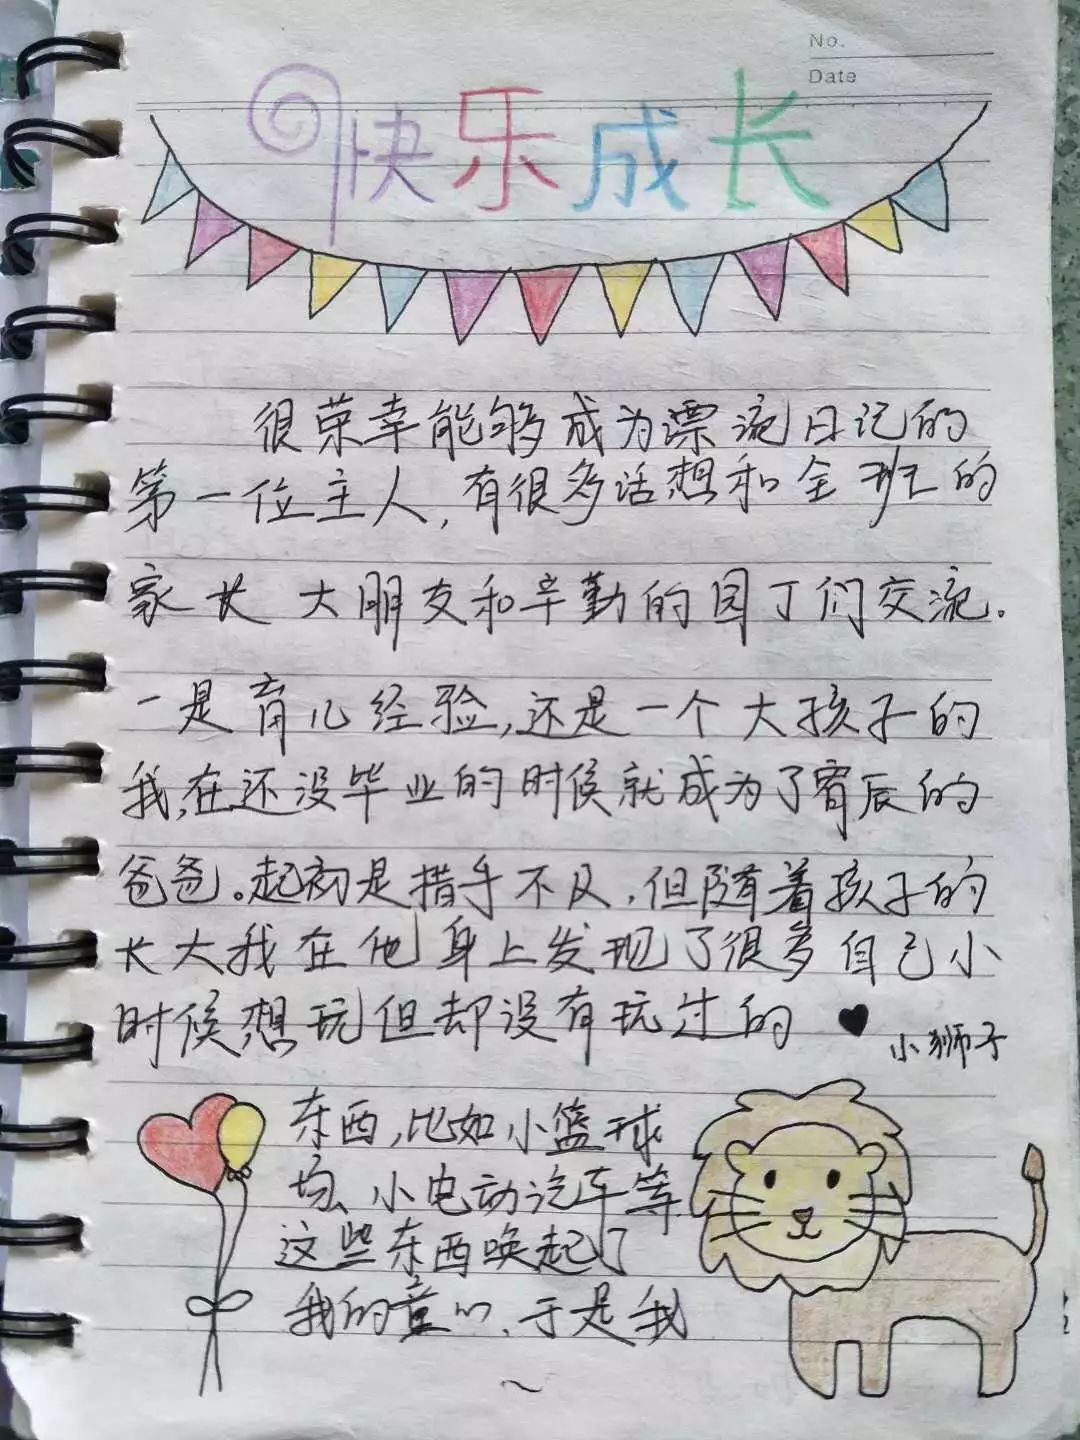 No.
Date
快乐成长
很荣幸能够成为漂流日记的
第一位主人,有很多话想和全班的
家长大朋友和辛勤的园丁们交流。
一是育儿经验,还是一个大孩子的
我,在还没毕业的时候就成为了宥辰的
爸爸。起初是措手不及,但随着孩子的
长大我在他身上发现了很多自己小
时候想玩但却没有玩过的
小狮子
东西,比如小篮球
场、小电动汽车等
这些东西唤起了
我的童心,于是我
~